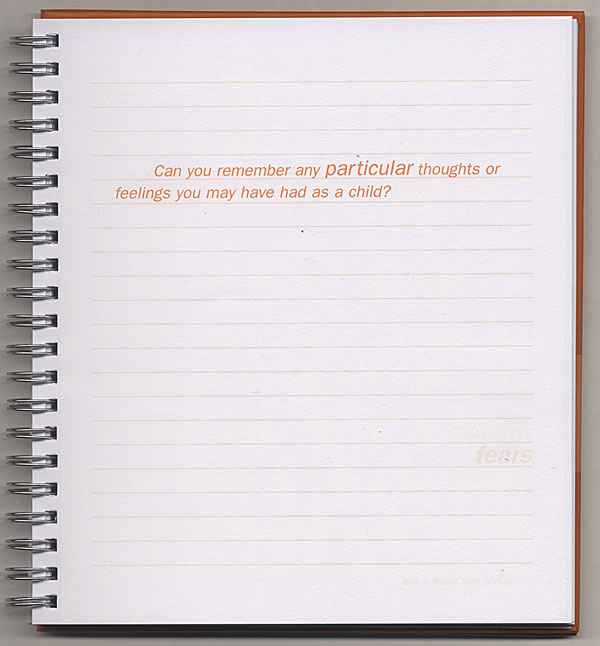 Can you remember any particular thoughts or
feelings you may have had as a child?
fears